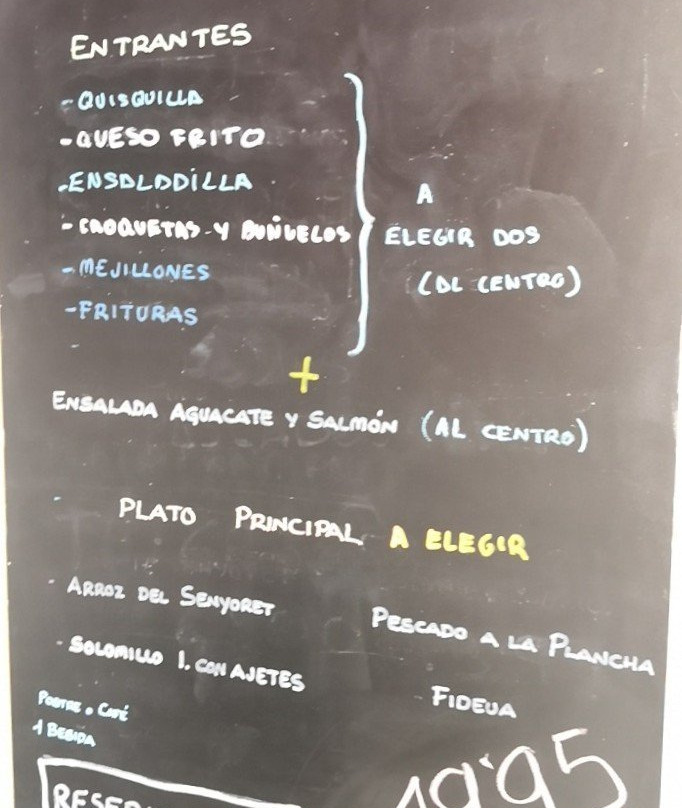 ENTRANTES
- QUISQUILLA
- QUESO FRITO
- ENSALADILLA
- CROQUETAS Y BUÑUELOS
- MEJILLONES
- FRITURAS
A
ELEGIR DOS
(AL CENTRO)
+
ENSALADA AGUACATE Y SALMÓN (AL CENTRO)
- PLATO PRINCIPAL A ELEGIR
- ARROZ DEL SENYORET
- SOLOMILLO I. CON AJETES
PESCADO A LA PLANCHA
- FIDEUA
POSTRE o CAFÉ
1 BEBIDA
19'95